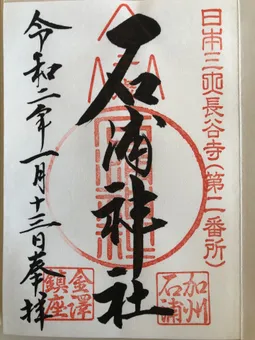 日本三所長谷寺(第二番所)
石浦神社
令和二年一月十三日奉拝
加州
石浦
金澤
鎮座